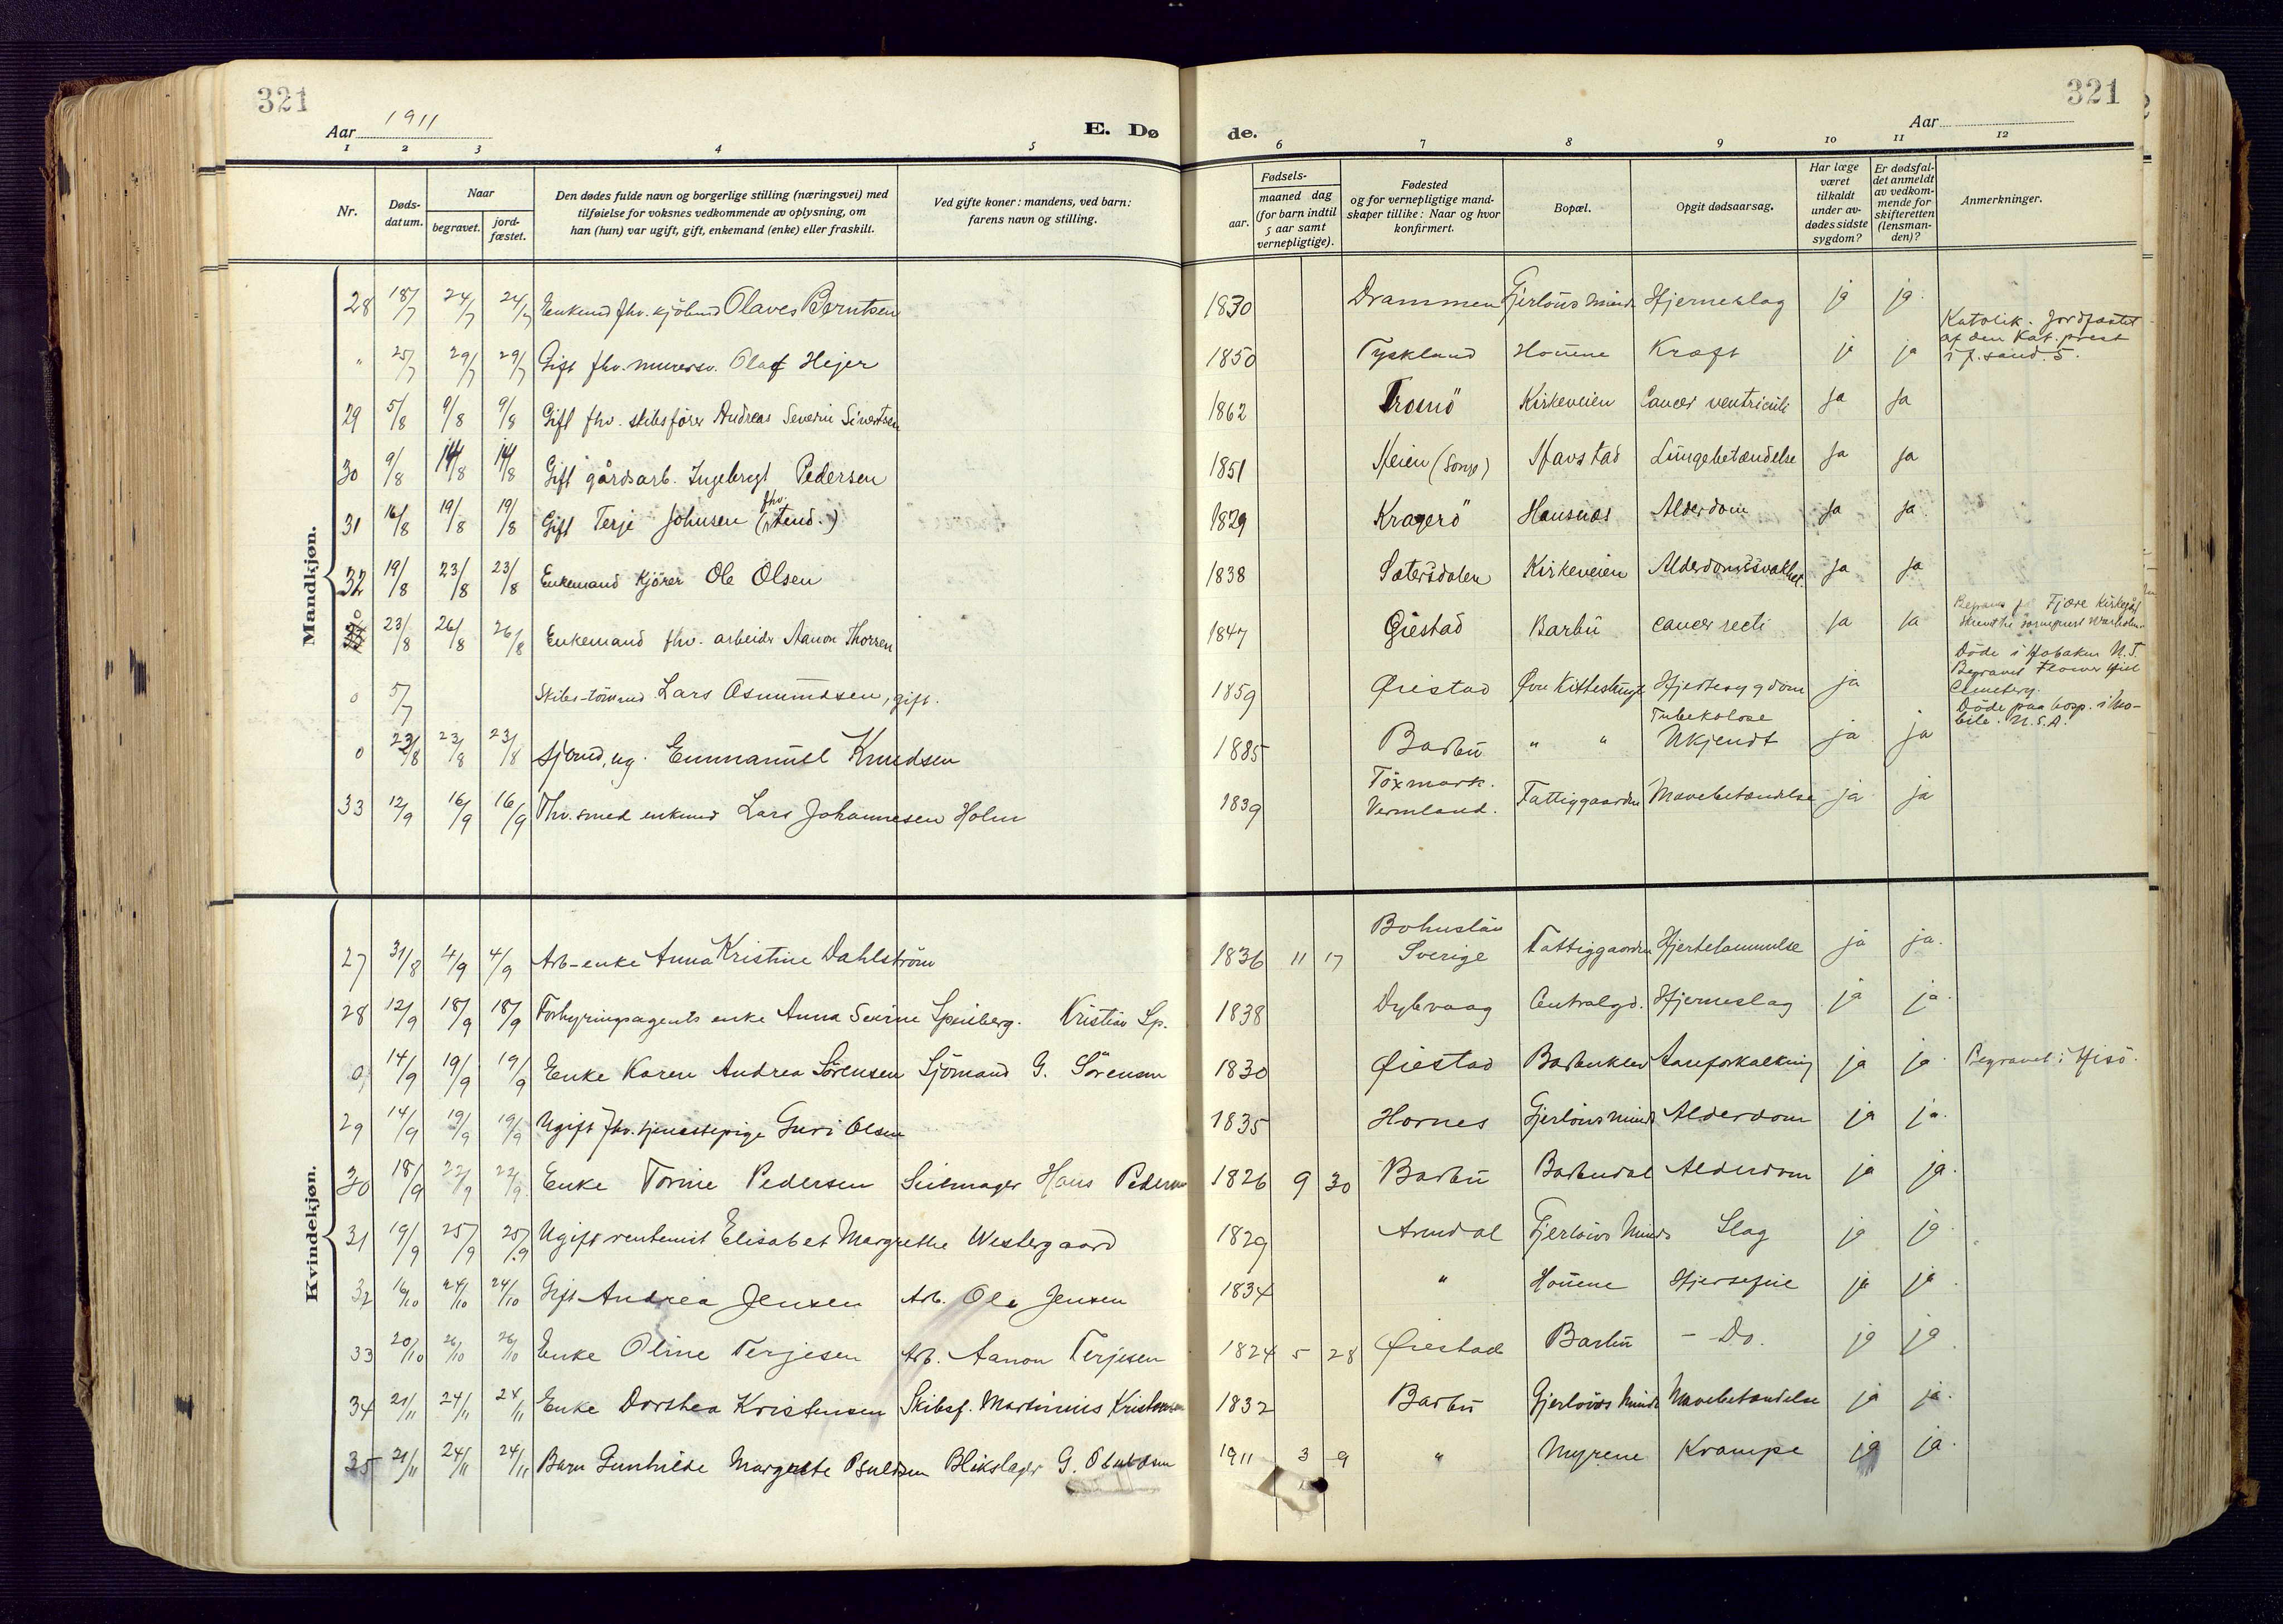 321
321
Aar 1911
E. Dø de.
Aar
1 2 3 4 5 6 7 8 9 10 11 12
Nr.
Døds-
datum.
Naar
begravet.
jord-
fæstet.
Den dødes fulde navn og borgerlige stilling (næringsvei) med
tilføielse for voksnes vedkommende av oplysning, om
han (hun) var ugift, gift, enkemand (enke) eller fraskilt.
Ved gifte koner: mandens, ved barn:
farens navn og stilling.
Fødsels-
aar.
maaned dag
(for barn indtil
5 aar samt
vernepligtige).
Fødested
og for vernepligtige mand-
skaper tillike: Naar og hvor
konfirmert.
Bopæl.
Opgit dødsaarsag.
Har læge
været
tilkaldt
under av-
dødes sidste
sygdom?
Er dødsfal-
det anmeldt
av vedkom-
mende for
skifteretten
(lensman-
den)?
Anmerkninger.
Mandkjøn.
28 18/7 24/7 24/7 Enkemd fhv. kjøbmd Olaves Berntsen 1830 Drammen Gjerløus Minde Hjerneslag ja ja.
" 25/7 29/7 29/7 Gift fhv. murersv. Olaf Hejer 1850 Tyskland Houene Kræft ja ja Katolik. Jordfæstet
af den Kat. prest
29 5/8 9/8 9/8 Gift fhv. skibsfører Andreas Severin Sivertsen 1862 Tromö Kirkeveien Cancer ventriculi Ja Ja
30 9/8 14/8 14/8 Gift gårdsarb. Ingebregt Pedersen 1851 Heien (Songe) Stavstad Lungebetændelse Ja Ja
31 16/8 19/8 19/8 Gift Terje Johnsen (fhv. stend.) 1829 Kragerö Hansnes Alderdom Ja Ja
32 19/8 23/8 23/8 Enkemand Kjörer Ole Olsen 1838 Sætersdalen Kirkeveien Alderdomssvakhet. Ja Ja
0 23/8 26/8 26/8 Enkemand fhv. arbeider Aanon Thorsen 1847 Øiestad Barbu cancer recti Ja Ja Begraves p. Fjære Kirkegård
0 5/7 Skibs-tömmd Lars Osmundsen, gift. 1859 Øiestad Øvre Kittelsbugt Hjertesygdom ja Döde i Hoboken N.J.
Begravet Flower Hill
Cemetery.
0 23/8 23/8 23/8 sjömd, ug. Emmanuel Knudsen 1885 Barbu " " Tuberkolose
Ukjendt ja ja Döde paa hosp. i Mo-
bile. U.S.A.
33 12/9 16/9 16/9 Fhv. smed enkemd Lars Johannesen Holm 1839 Töxmark.
Vermland. Fattiggaarden Mavebetændelse ja ja
Kvindekjøn.
27 31/8 4/9 4/9 Arb-enke Anna Kristine Dahlström 1836 11 17 Bohuslän
Sverige Fattiggaarden Hjertelammelse ja ja.
28 12/9 18/9 18/9 Forhyringsagents enke Anna Sevrine Spinberg. Kristian Sp. 1838 Dybvaag Centralgd. Hjerneslag ja ja.
0 14/9 19/9 19/9 Enke Karen Andrea Sörensen Sjömand G. Sörensen 1830 Øiestad Barbuklev Aareforkalkning ja ja Begravet i Hisö.
29 14/9 19/9 19/9 Ugift fhv. tjenestepige Guri Olsen 1835 Hornes Gjerlöws Minde Alderdom ja ja.
30 18/9 22/9 22/9 Enke Torine Pedersen Seilmager Hans Pedersen 1826 9 30 Barbu Barbudal Alderdom ja ja.
31 19/9 25/9 25/9 Ugift rentenist Elisabet Margrethe Westergaard 1829 Arendal Gjerløws Minde Slag ja ja.
32 16/10 24/10 24/10 Gift Andrea Jensen Arb. Ole Jensen 1834 " Houene Hjertefeil ja ja.
33 20/10 26/10 26/10 Enke Oline Terjesen Arb. Aanon Terjesen 1824 5 28 Øiestad Barbu - Do. ja ja.
34 21/11 24/11 24/11 Enke Dorthea Kristensen Skibsf. Martinius Kristensen 1832 Barbu Gjerlöws Minde Mavebetændelse ja ja.
35 21/11 24/11 24/11 Barn Gunhilde Margrete Blikslager G. 1911 3 9 " Myrene Krampe ja ja.